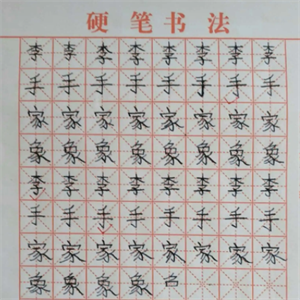 硬笔书法
李李李李李李李李
手手手手手手手手
家家家家家家家家
象象象象象象象象
李李李李李李李李
手手手手手手手手
家家家家家家家家
象象象象